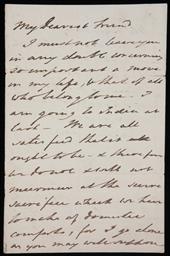 My Dearest friend
I must not leave you
in any doubt concerning
so important a move
in my life, & that of all
who belong to me. I
am going to India at
last — We are all
satisfied that it is as it
ought to be - & therefore
we do not & shall not
murmur at the severe
sacrifice which we have
to make of domestic
comforts, for I go alone
as you may well suppose